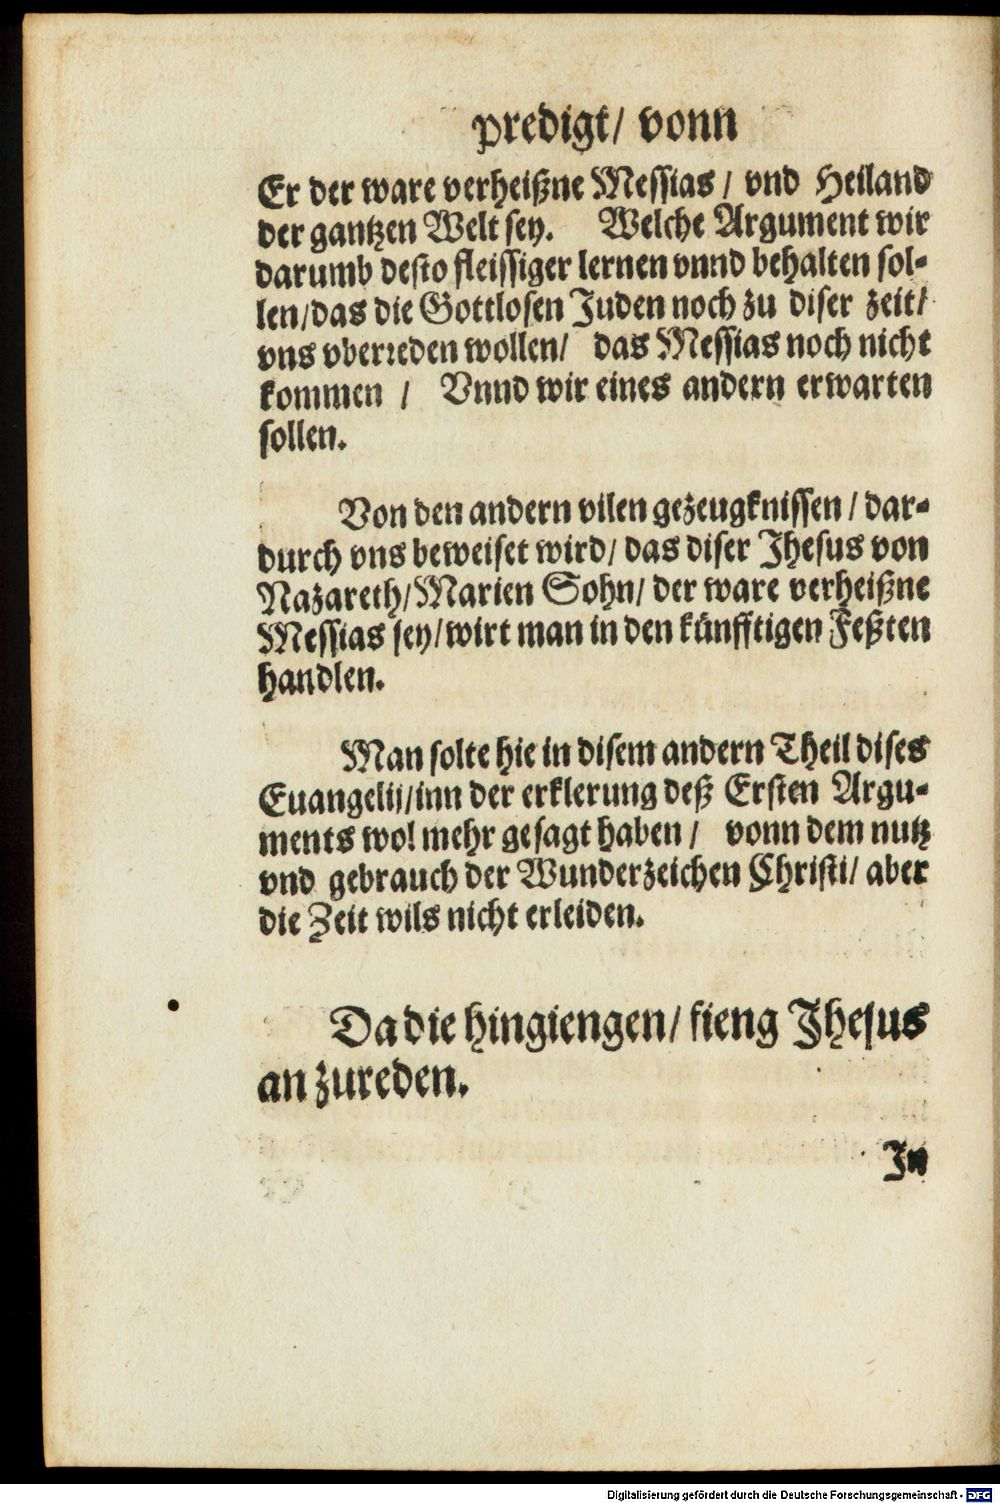 predigt/ vonn
Er der ware verheißne Messias / vnd Heiland
der gantzen Welt sey. Welche Argument wir
darumb desto fleissiger lernen vnnd behalten sol-
len/das die Gottlosen Juden noch zu diser zeit/
vns vberreden wollen/ das Messias noch nicht
kommen / Vnnd wir eines andern erwarten
sollen.
Von den andern vilen gezeugknissen / dar-
durch vns beweiset wird/ das diser Jhesus von
Nazareth/Marien Sohn/ der ware verheißne
Messias sey/wirt man in den künfftigen Feßten
handlen.
Man solte hie in disem andern Theil dises
Euangelij/inn der erklerung deß Ersten Argu-
ments wol mehr gesagt haben / vonn dem nutz
vnd gebrauch der Wunderzeichen Christi/ aber
die Zeit wils nicht erleiden.
Da die hingiengen/ fieng Jhesus
an zureden.
In
Digitalisierung gefördert durch die Deutsche Forschungsgemeinschaft - DFG